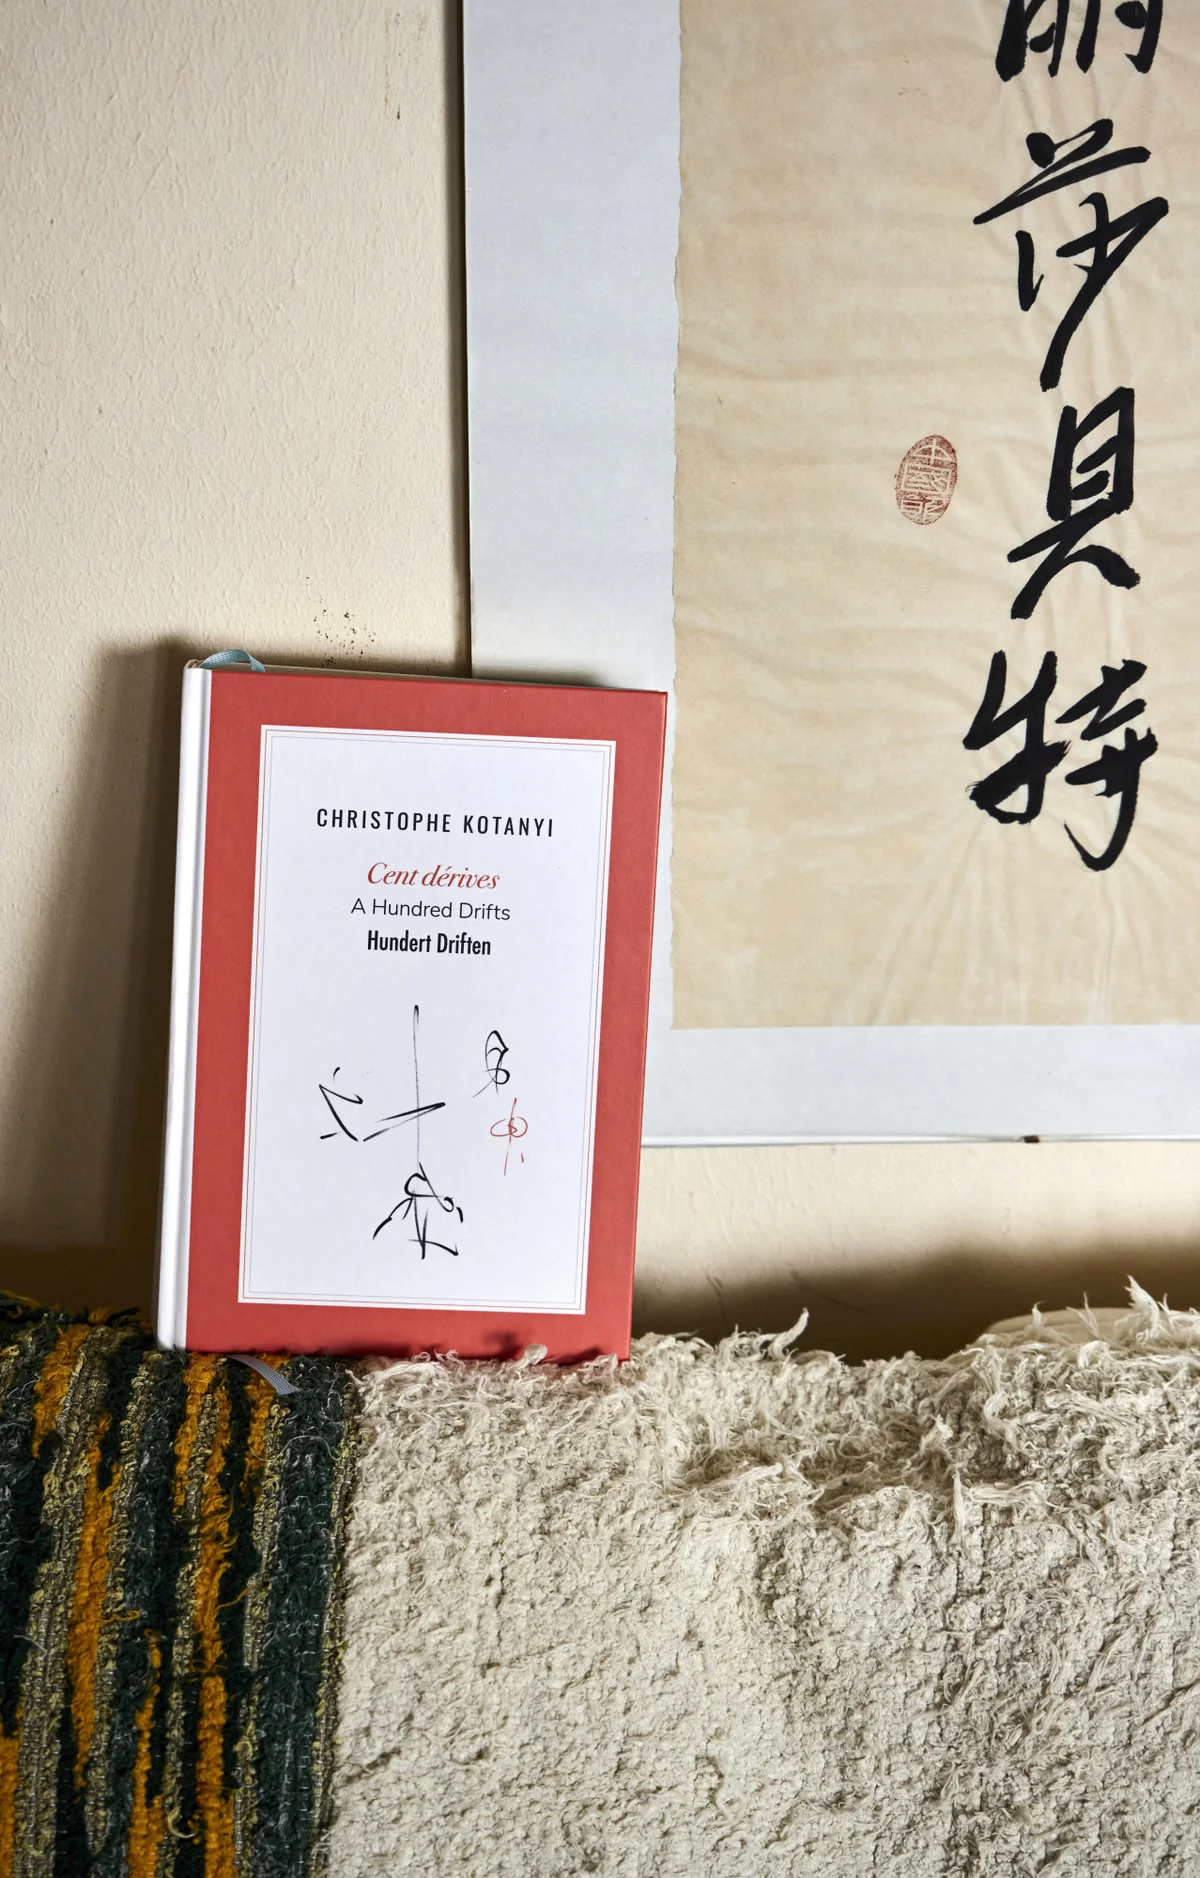 丽莎貝特
CHRISTOPHE KOTANYI
Cent dérives
A Hundred Drifts
Hundert Driften